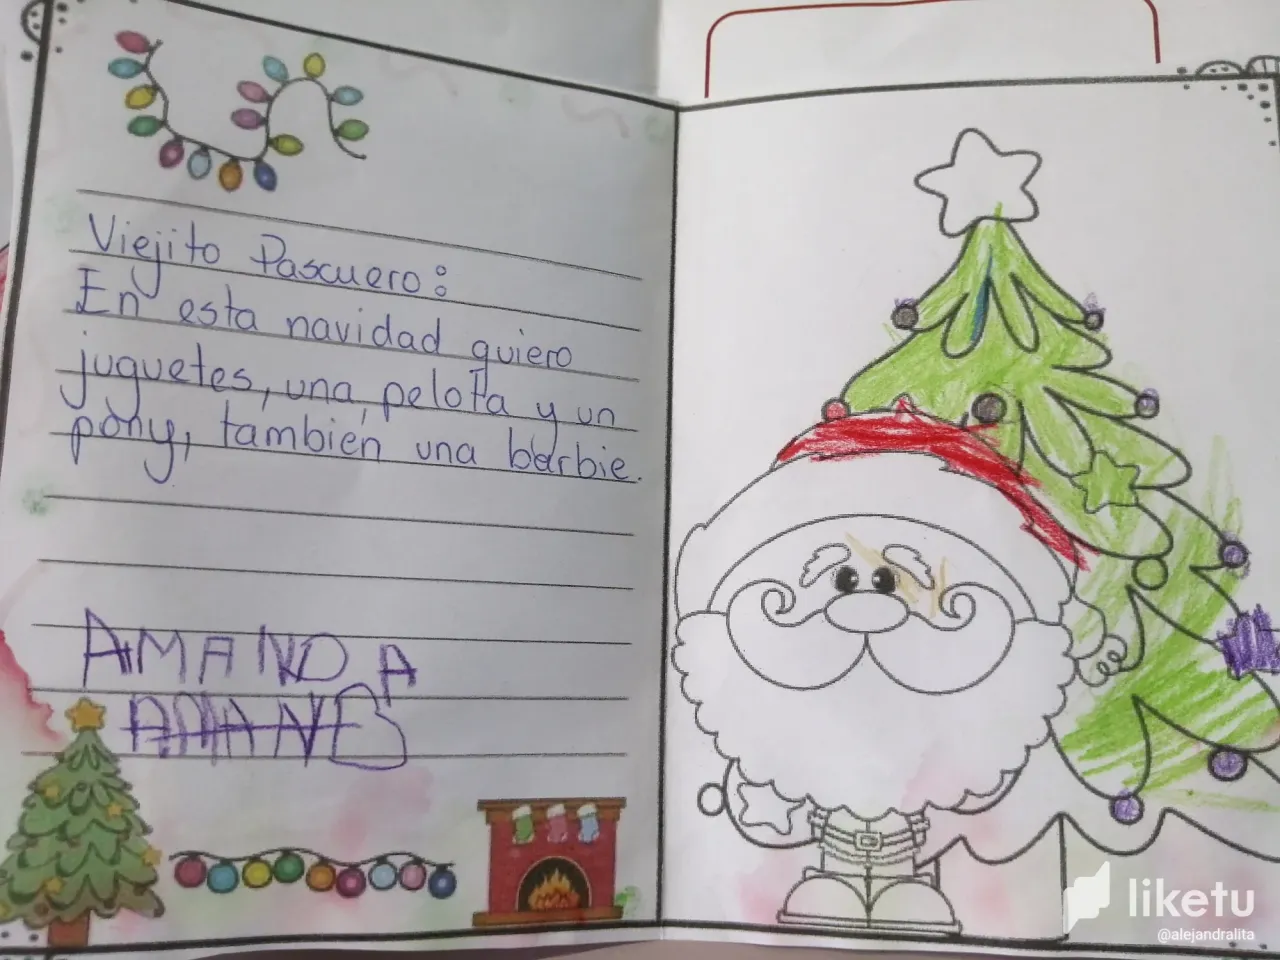 Viejito Pascuero:
En esta navidad quiero
juguetes, una pelota y un
pony, también una barbie.
AMANDA
liketu
@alejandralita